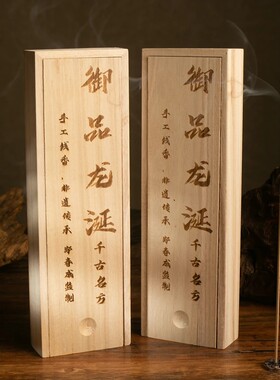 御品龙涎
千古名方
手工线香，非遗传承 邓春成监制
御品龙涎
千古名方
手工线香，非遗传承 邓春成监制